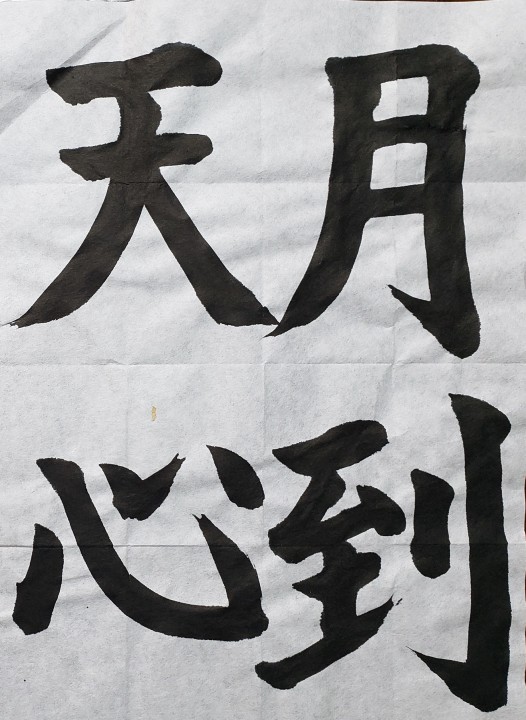 月到
天心